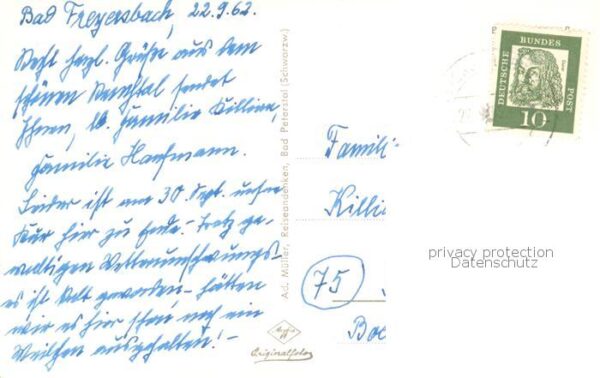 Bad Freyersbach, 22.9.62.
Recht herzl. Grüße aus dem
schönen Renchtal sendet
Ihnen, lb. Familie Killian,
Familie Kaufmann.
Leider ist am 30 Sept. unsere
Kur hier zu Ende. Trotz ge-
waltigen Witterumschwungs-
es ist kalt geworden - hätten
wir es hier schon noch ein
Weilchen ausgehalten! -
Ad. Müller, Reiseandenken, Bad Peterstal (Schwarzw.)
Originalfoto
Famili
Killi
75
DEUTSCHE BUNDES POST
Dürer
10
privacy protection
Datenschutz